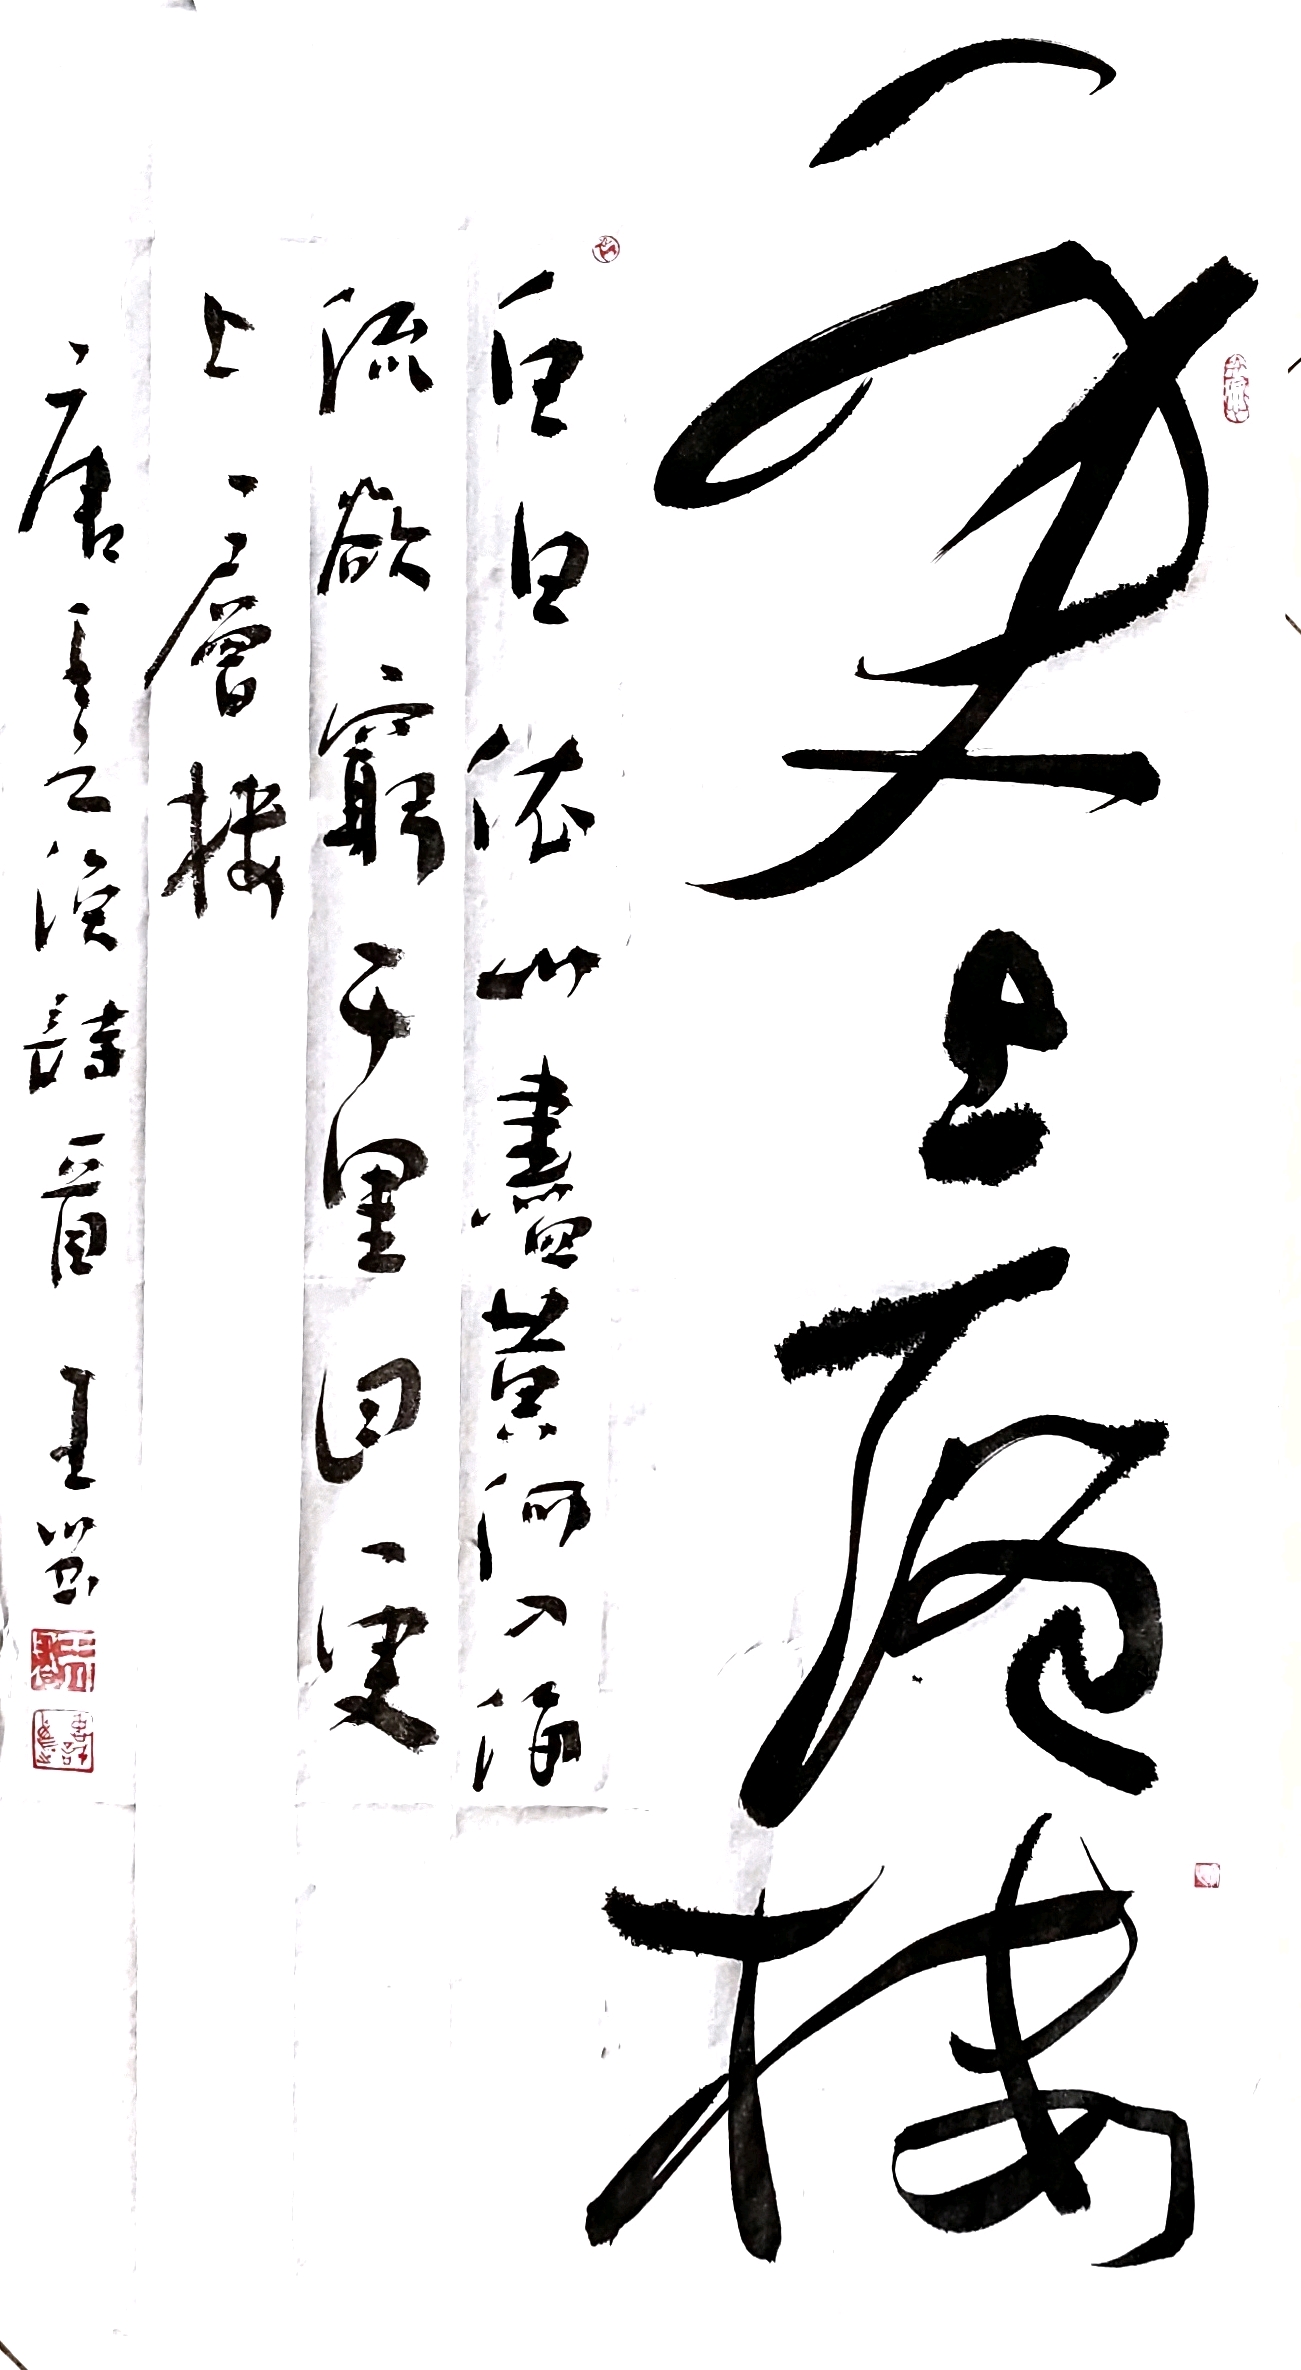 更上層樓
白日依山盡黄河入海
流欲窮千里目更
上一層樓
唐王之渙詩晉王